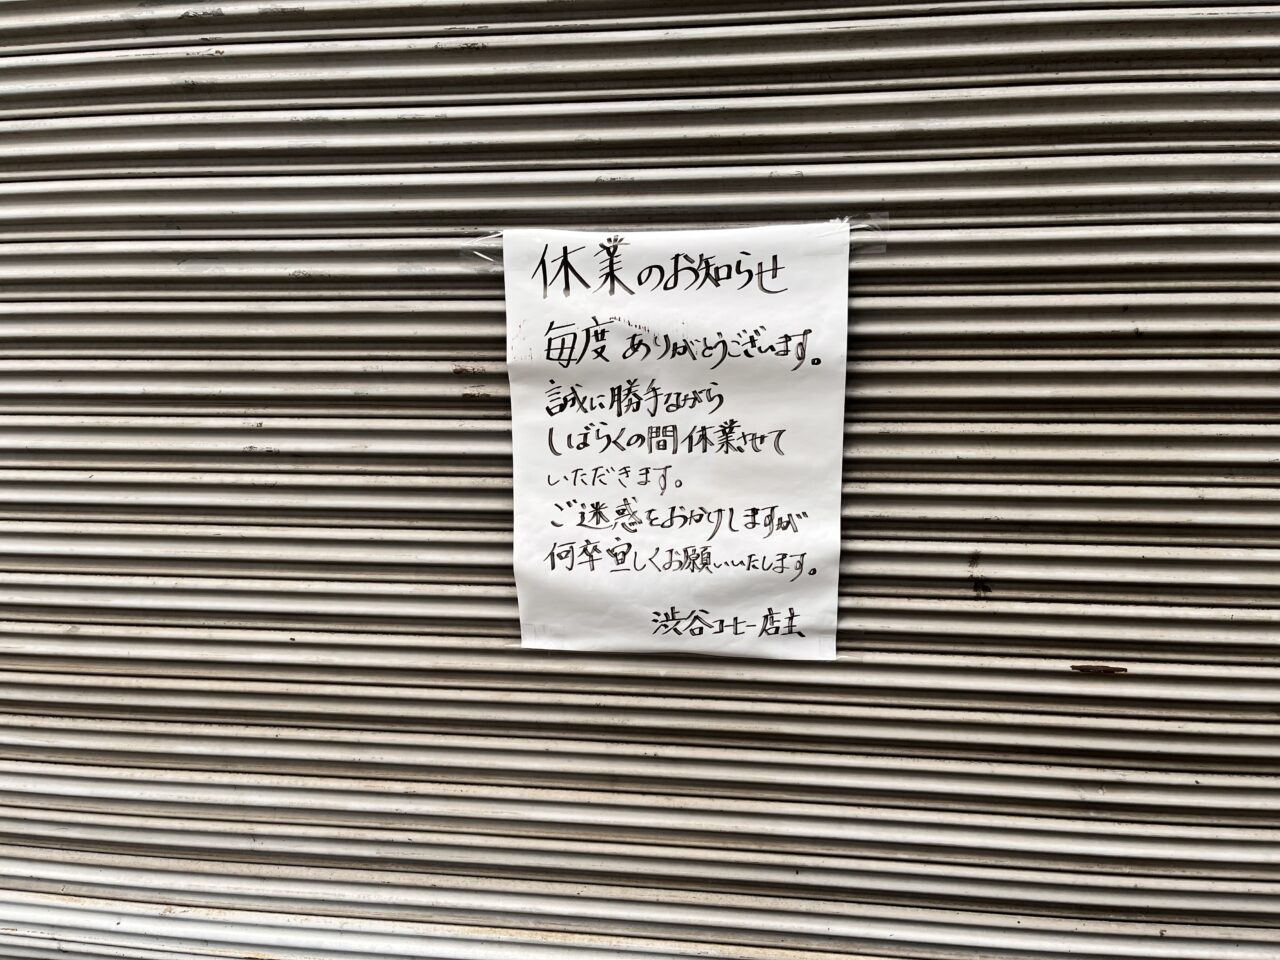 休業のお知らせ
毎度ありがとうございます。
誠に勝手ながら
しばらくの間休業させて
いただきます。
ご迷惑をおかけしますが
何卒宜しくお願いいたします。
渋谷コーヒー店主